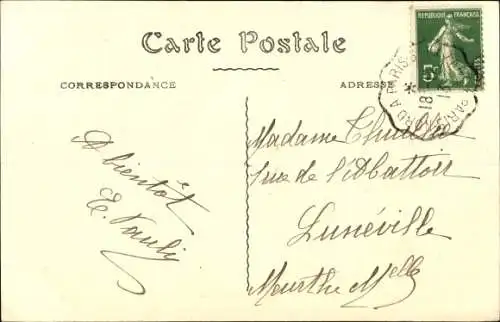 Carte Postale
CORRESPONDANCE
ADRESSE
REPUBLIQUE FRANÇAISE
5c
A bientôt
E. Pauly
Madame
rue de l'Abattoir
Lunéville
Meurthe Melle